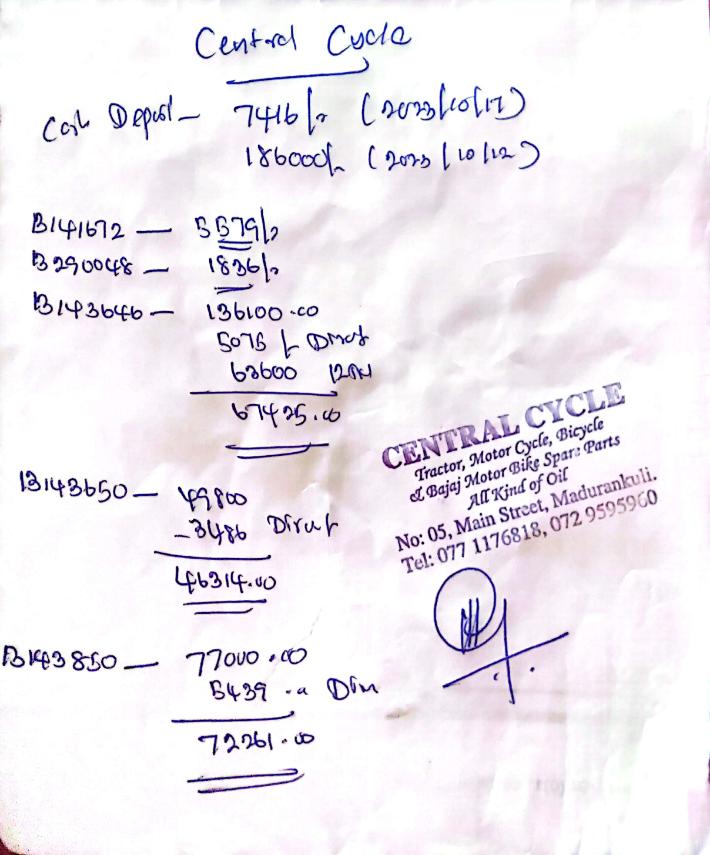 Central Cycle
Cash Deposit - 7416/- (2023/10/17)
186000/- (2023/10/12)
B141672 - 5579/-
B290048 - 1836/-
B143646 - 136100.00
5075/-
63600
67425.00
B143650 - 49800
-3486
46314.00
B143850 - 77000.00
5439
72261.00
CENTRAL CYCLE
Tractor, Motor Cycle, Bicycle
& Bajaj Motor Bike Spare Parts
All Kind of Oil
No: 05, Main Street, Madurankuli.
Tel: 077 1176818, 072 9595960